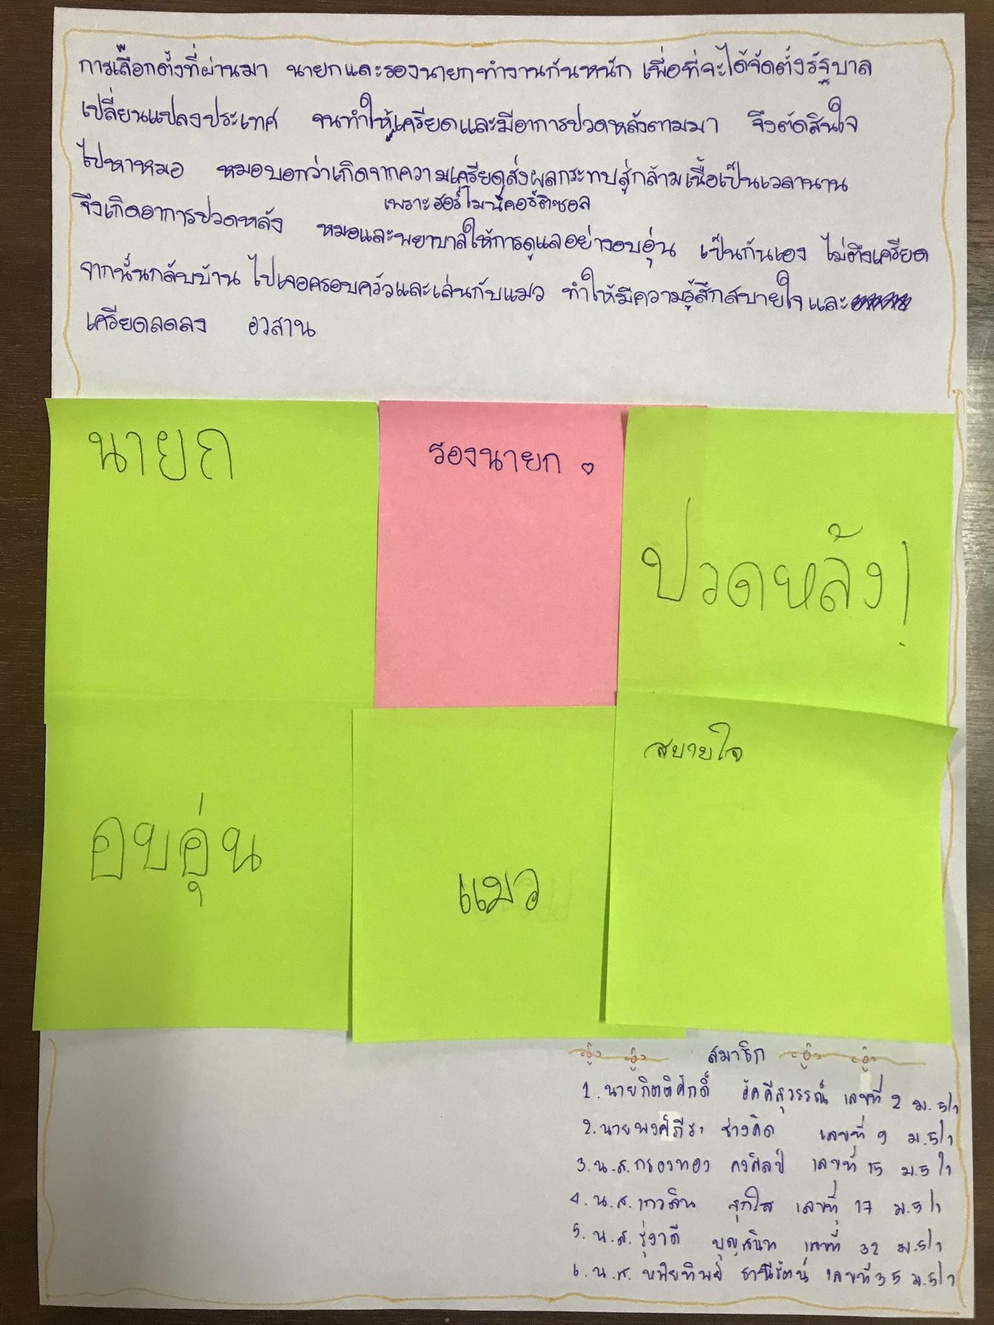 การเลือกตั้งที่ผ่านมา นายกและรองนายกทำงานกันหนัก เพื่อที่จะได้จัดตั้งรัฐบาล
เปลี่ยนแปลงประเทศ จนทำให้เครียดและมีอาการปวดหลังตามมา จึงตัดสินใจ
ไปหาหมอ หมอบอกว่าเกิดจากความเครียดส่งผลกระทบสู่กล้ามเนื้อเป็นเวลานาน
เพราะฮอร์โมนคอร์ติซอล
จึงเกิดอาการปวดหลัง หมอและพยาบาลให้การดูแลอย่างอบอุ่น เป็นกันเอง ไม่ตึงเครียด
จากนั้นกลับบ้าน ไปเจอครอบครัวและเล่นกับแมว ทำให้มีความรู้สึกสบายใจและ
เครียดลดลง อวสาน
นายก
รองนายก ♡
ปวดหลัง!
อบอุ่น
แมว
สบายใจ
สมาชิก
1. นายกิตติศักดิ์ อัคคีสุวรรณ์ เลขที่ 2 ม.5/1
2. นายพงศ์ภีระ ช่างคิด เลขที่ 9 ม.5/1
3. น.ส.กรองทอง คงศิลป์ เลขที่ 15 ม.5/1
4. น.ส. สุกใส เลขที่ 17 ม.5/1
5. น.ส. บุญสนิท เลขที่ 32 ม.5/1
6. น.ส. เลขที่ 35 ม.5/1